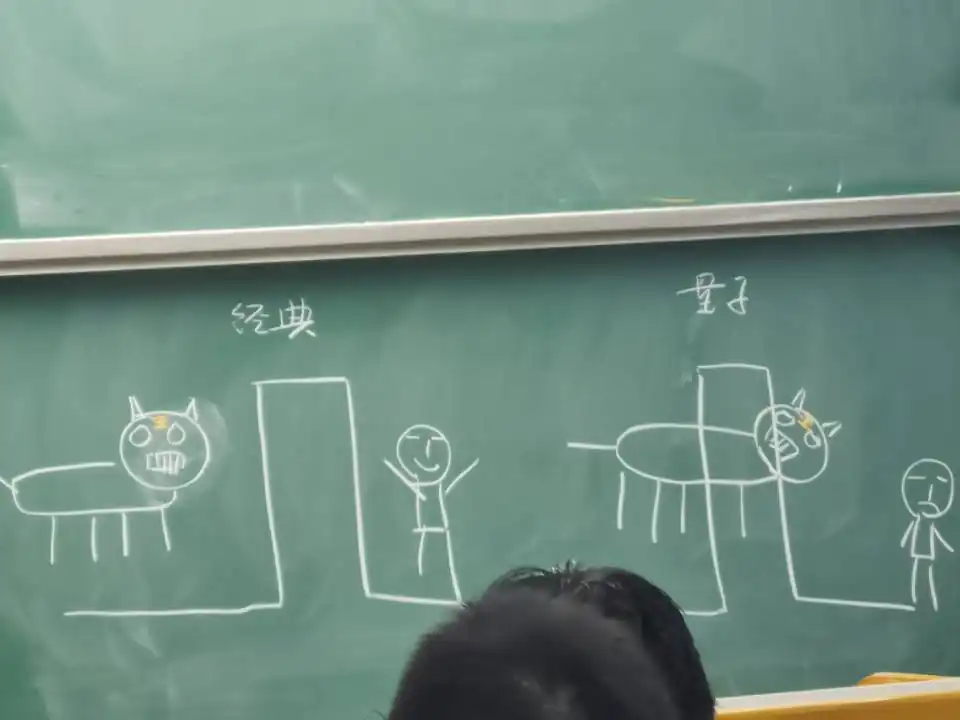 经典
量子